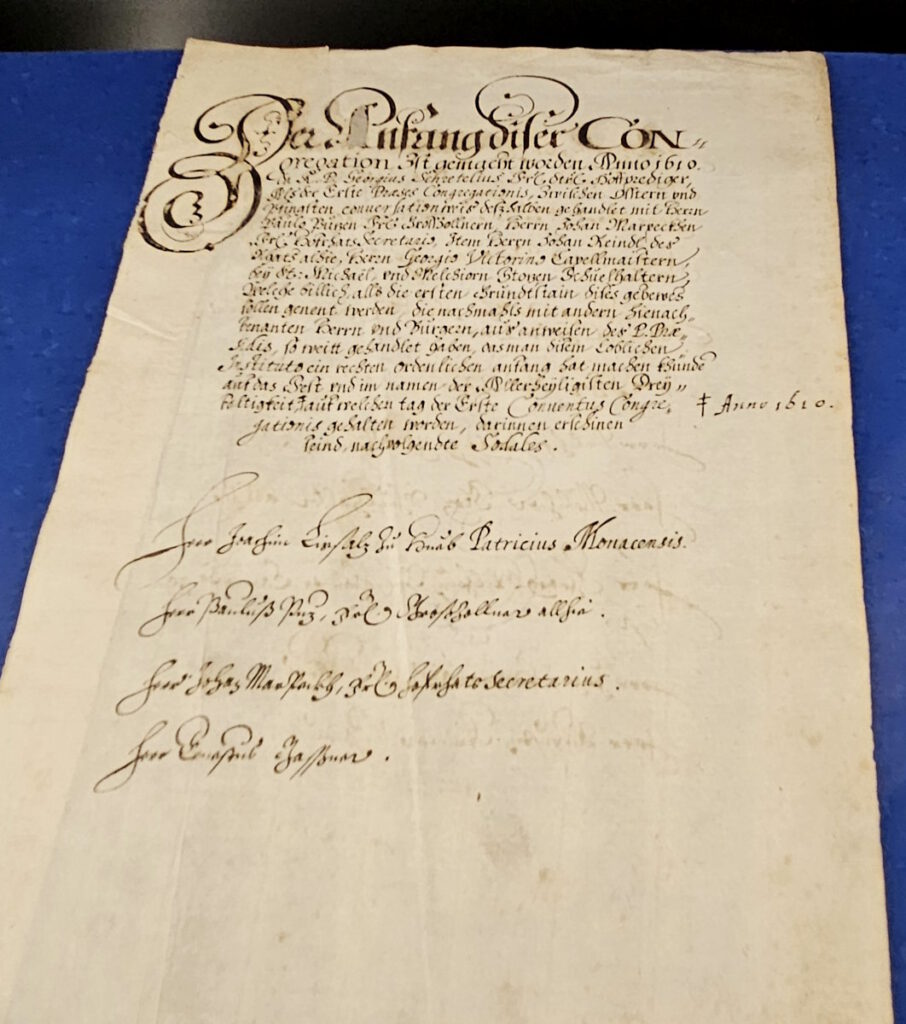 Der Anfang diser CON=
gregation Ist gemacht worden, Anno 1610.
Da R. P. Georgius Schretelius Frl: Drl: Hoffprediger,
Als der Erste Præses Congregationis, zwischen Ostern vnd
Pfingsten conversationweis deszhalben gehandlet mit Herrn
Paulo Putzen Frl: Groszzollnern, Herrn Johan Marpeckhen
Frl: Hofrhats Secretario, Item Herrn Johan Keindl, des
Rhats alhie, Herrn Georgio Victorino Capellmaistern,
bey St: Michaël, vnd Melchiorn Stozen Schuelhaltern,
Welche billich, alls die ersten Grundtstain dises gebewes
sollen genent werden, die nachmahls mit andern hienach=
benanten Herrn vnd Burgern, aus anweisen des P. Præ=
sidis, so weitt gehandlet haben, das man disem Loblichen
Instituto ein rechten ordenlichen anfang hat machen khünde
auf das Fest vnd im namen der Allerheyligisten Drey=
faltigkeit, † auf welchen tag der Erste Conuentus Congre,
† Anno 1610.
gationis gehalten worden, darinnen erschinen
seind, nachvolgendte Sodales.
Herr Joachim Ligsalz zu Patricius Monacensis.
Herr Pauluß Puz, Großzollner allhie.
Herr Johan Marpeckh, hofrhats Secretarius.
Herr